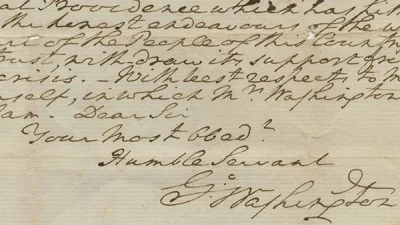 at Providence which has hit
the honest endeavours of the w
of the People of this Countr
trust, withdraw its support fro
crisis. – With best respects to M
self, in which Mrs Washington
am. Dear Sir
Your Most Obedt
Humble Servant
Go: Washington